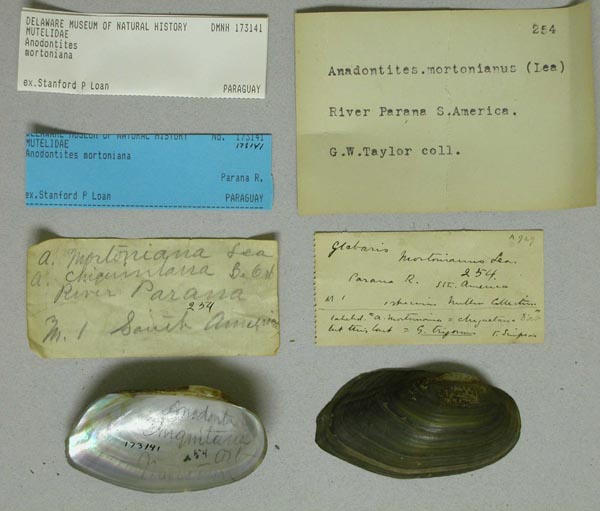 DELAWARE MUSEUM OF NATURAL HISTORY DMNH 173141
MUTELIDAE
Anodontites
mortoniana
ex.Stanford P Loan PARAGUAY
254
Anadontites.mortonianus (Lea)
River Parana S.America.
G.W.Taylor coll.
DELAWARE MUSEUM OF NATURAL HISTORY NO. 173141
MUTELIDAE 173141
Anodontites mortoniana
Parana R.
ex.Stanford P Loan PARAGUAY
A. Mortoniana Lea
A. Chiquitana D'Orb
River Parana
254
M. 1 South America
Glabaris Mortonianus Lea.
254
Parana R. Sth. America
M 1 specimen Collection
labeled "A. mortoniana = chiquitana D'Orb"
but this last = G. trigonus Simpson
Anadonta
Chiquitana
173141 254 Orb